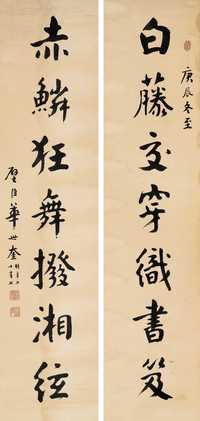 庚辰冬至
白藤交穿織書笈
赤鱗狂舞撥湘絃
璧臣華世奎